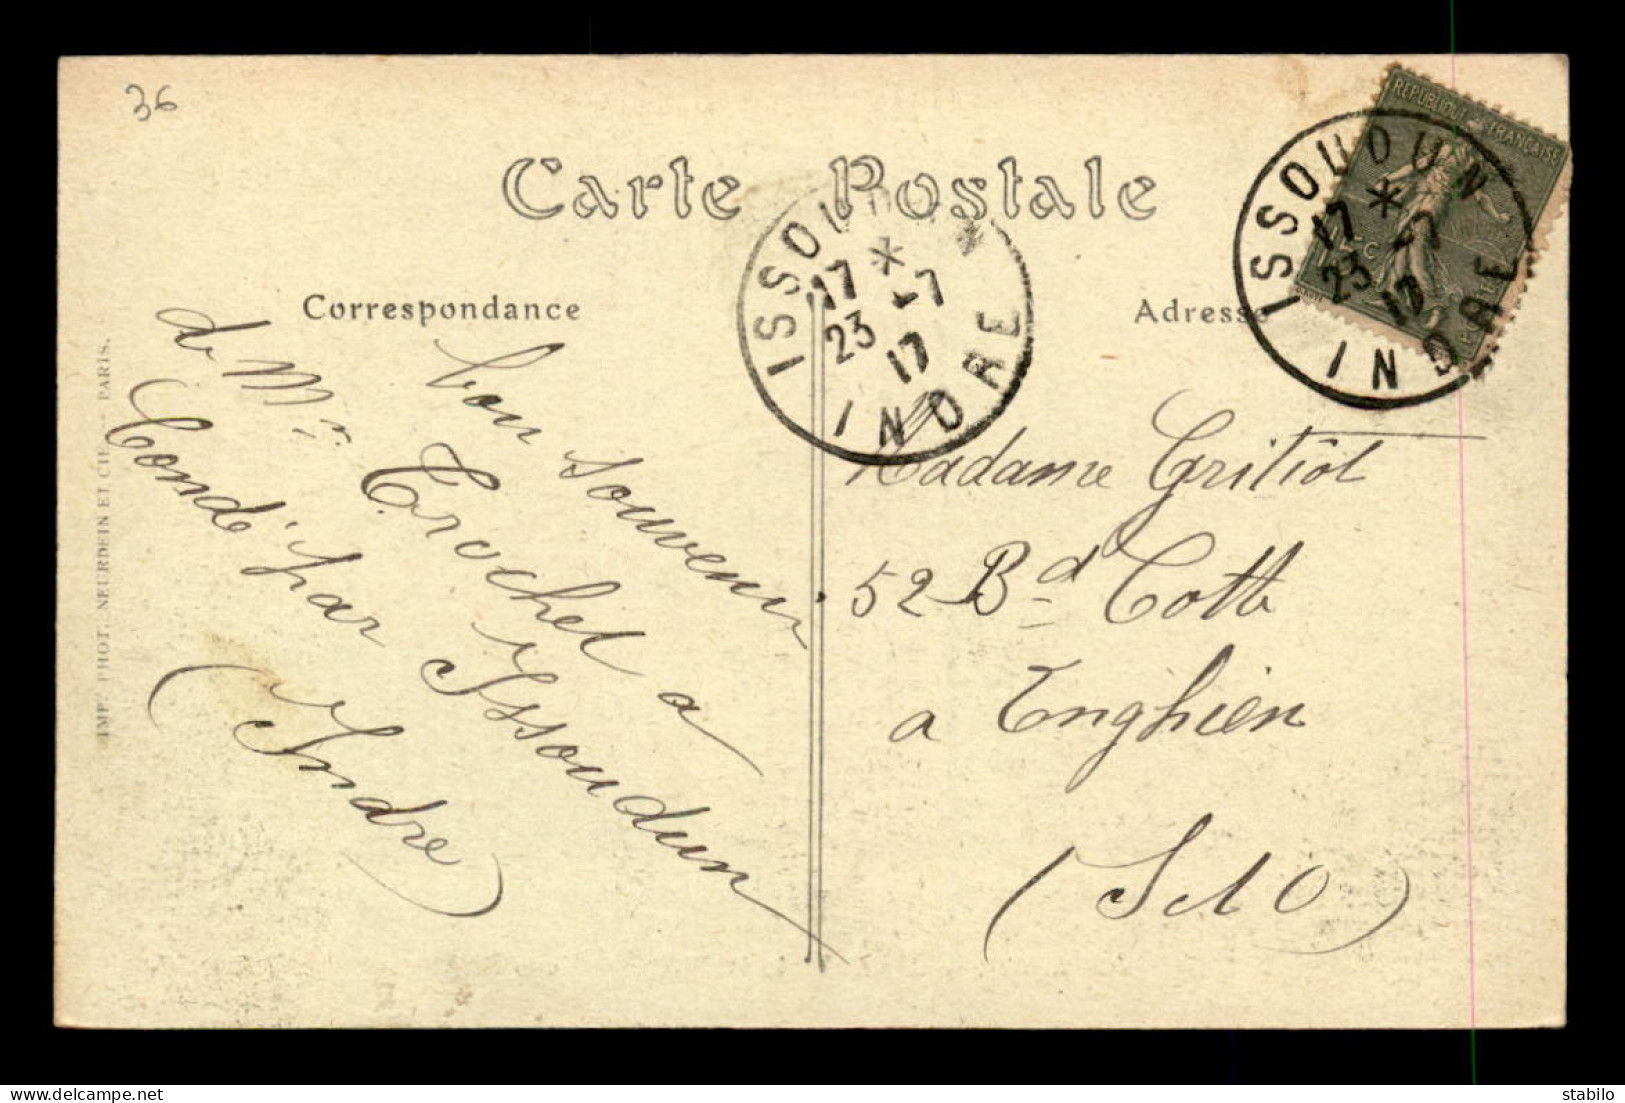 36
Carte Postale
Correspondance
Adresse
REPUBLIQUE FRANÇAISE
ISSOUDUN
17 * -7
23
17
INDRE
ISSOUDUN
17 * -7
23
17
INDRE
bon souvenir
d Mr Crochet a
Condé par Issoudun
(Indre)
Madame Gritiot
52 Bd Cotte
a Enghien
(S et O)
IMP. PHOT. NEURDEIN ET CIE - PARIS.
stabilo